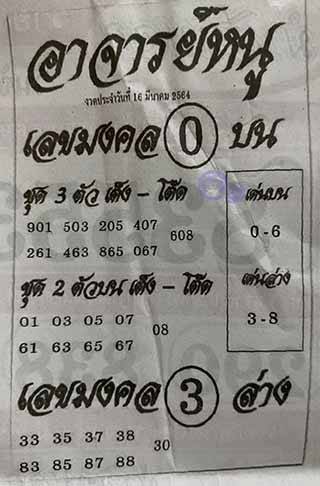 อาจารย์หนู
งวดประจำวันที่ 16 มีนาคม 2564
เลขมงคล 0 บน
ชุด 3 ตัว เต็ง – โต๊ด
901 503 205 407
608
261 463 865 067
เด่นบน
0-6
ชุด 2 ตัวบน เต็ง – โต๊ด
01 03 05 07
08
61 63 65 67
เด่นล่าง
3-8
เลขมงคล 3 ล่าง
33 35 37 38
30
83 85 87 88